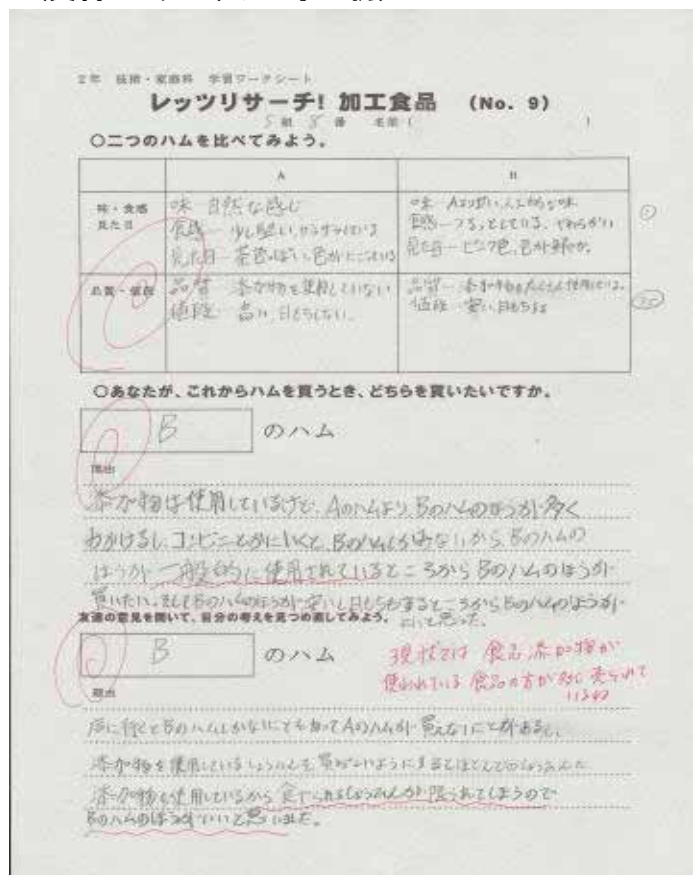 2年 技術・家庭科 学習ワークシート
レッツリサーチ! 加工食品 (No. 9)
5組 8番 名前(        )
○二つのハムを比べてみよう。
A B
味・食感 見た目
味 自然な感じ
食感 少し堅い、
見た目 茶色っぽい、色が
味 Aより 人工的な味
食感 つるっとしている、やわらかい
見た目 ピンク色、色が鮮やか。
品質・値段
品質 添加物を使用していない
値段 高い、日もちしない。
品質 添加物をたくさん使用している。
値段 安い、日もちする
○あなたが、これからハムを買うとき、どちらを買いたいですか。
B のハム
理由
添加物は使用しているけど、AのハムよりBのハムのほうが多く
コンビニとかにいくと、Bのハムしかみないから Bのハムの
ほうが一般的に使用されているところからBのハムのほうが
買いたい。そしてBのハムのほうが安いし日もちもするところからBのハムのほうが
いいと思った。
友達の意見を聞いて、自分の考えを見つめ直してみよう。
B のハム
現状では 食品添加物が
使われている食品の方が多く売られて
いるね
理由
店に行くとBのハムしかないこともあってAのハムが買えないことがあるし、
添加物を使用している を買わないようにするとほとんどの
添加物を使用しているから食べられる が限られてしまうので
Bのハムのほうがいいと思いました。